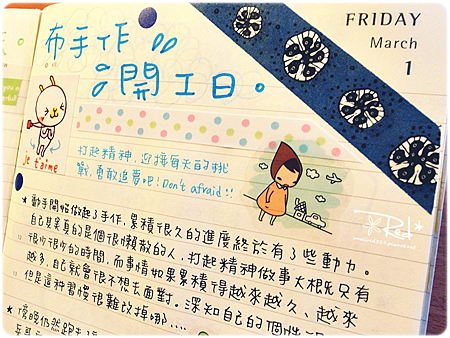 FRIDAY
March
1
布手作
開工日。
je t'aime
打起精神,迎接每天的挑
戰,勇敢追夢吧!Don't afraid!!
★動手開始做起了手作,累積很久的進度終於有了些動力。
自己其實真的是個很懶散的人,打起精神做事大概只有
很少很少的時間,而事情如果累積得越來越久、越來
越多,自己就會很不想去面對。深知自己的個性
但是這種習慣很難改掉哪....
★傍晚仍然跑去